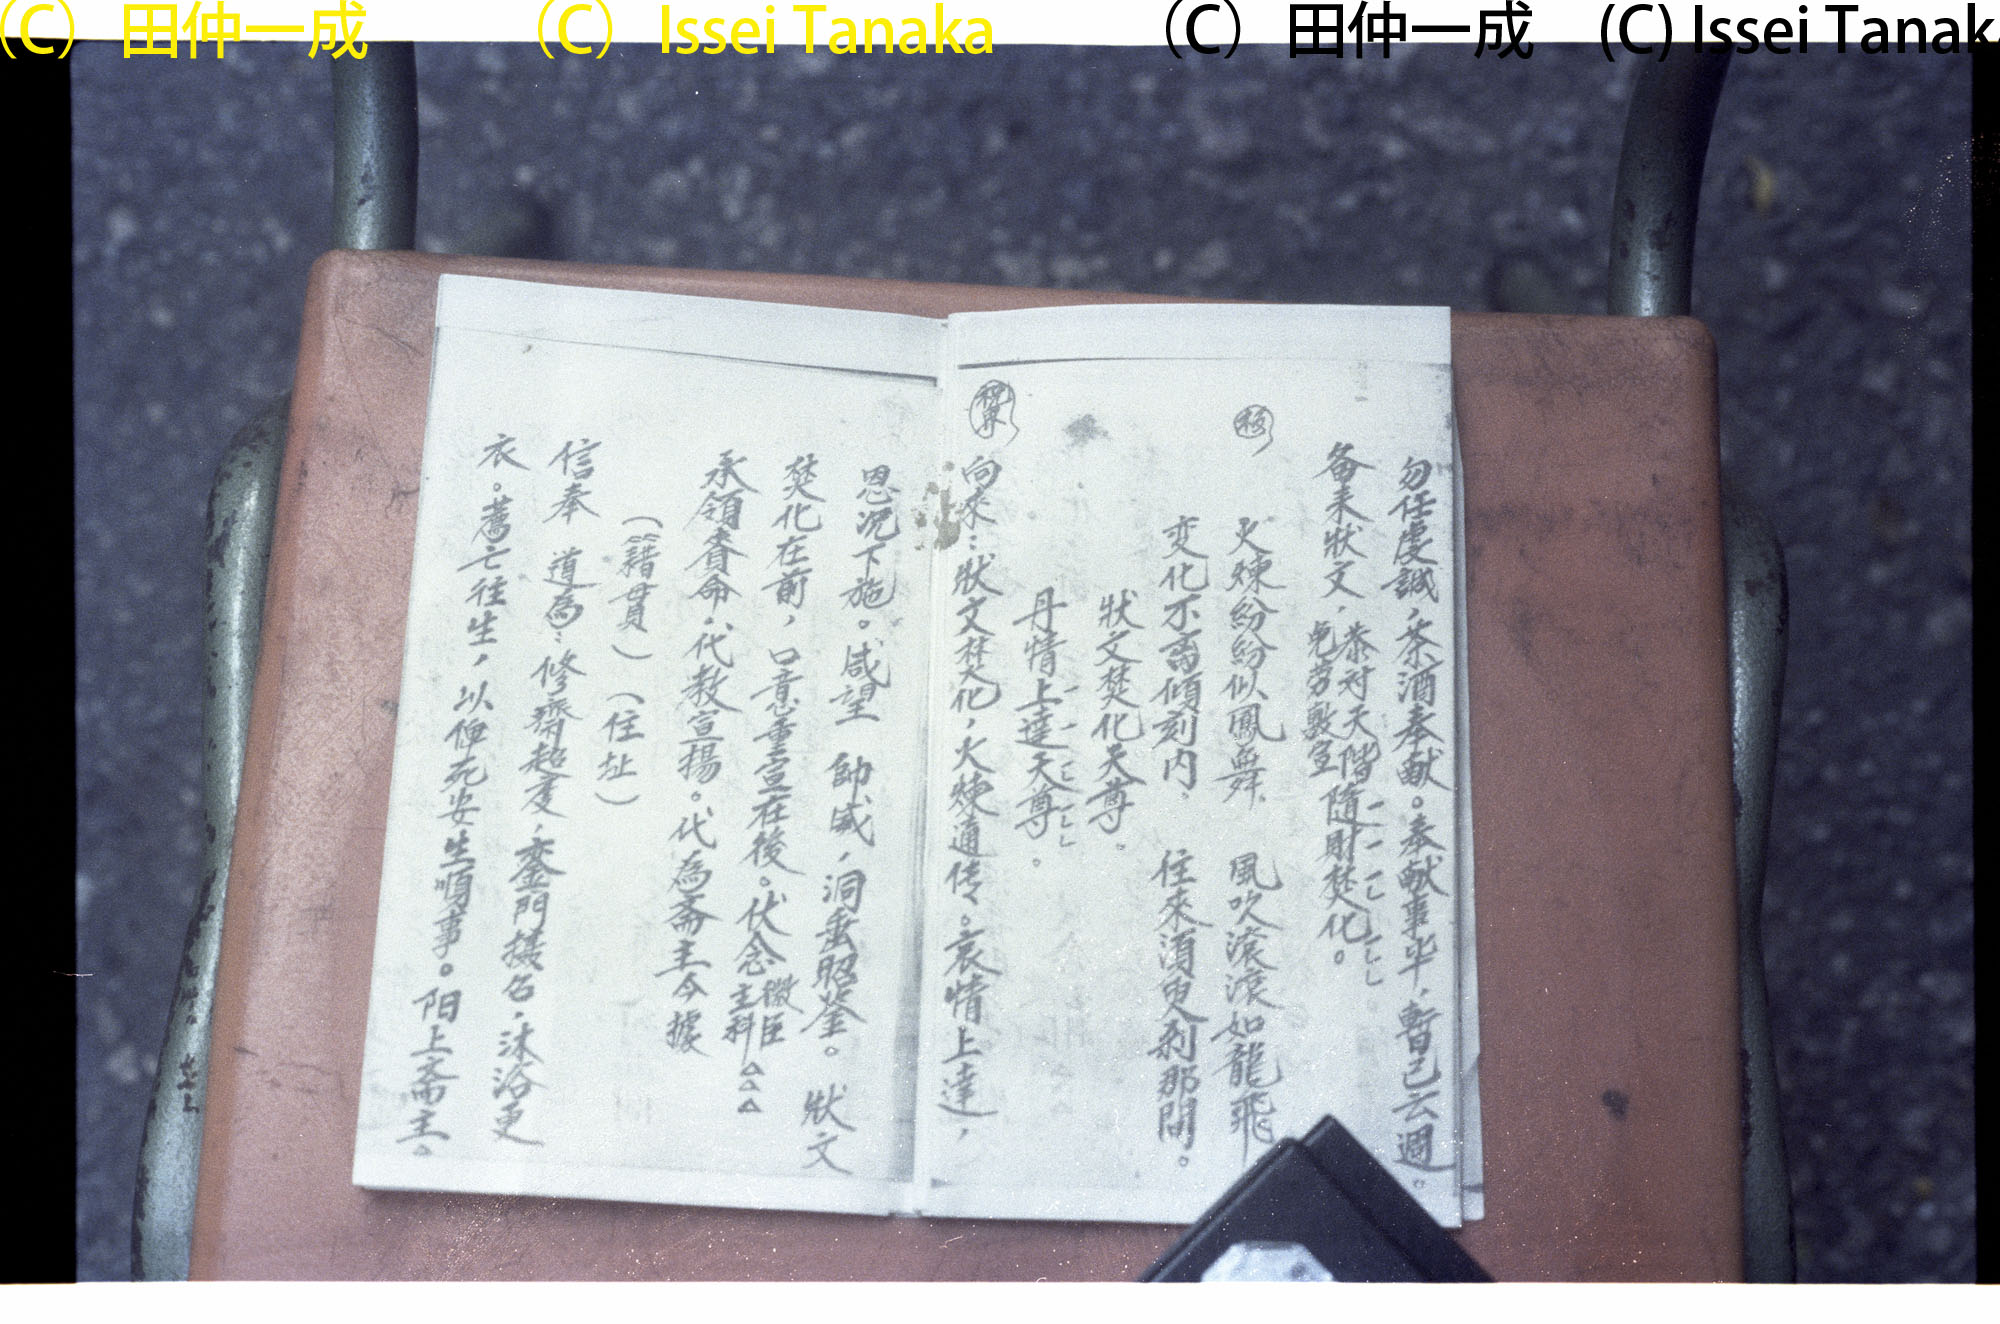 (C) 田仲一成 (C) Issei Tanaka (C) 田仲一成 (C) Issei Tanaka
勿任虔誠，茶酒奉献。奉献事毕，暫已云週。
备来狀文，恭对天階
免劳敷宣
隨財焚化。
火煉紛紛似鳳舞 風吹滾滾如龍飛
变化不离傾刻内 往來須臾刹那間。
狀文焚化天尊
丹情上達天尊。
向來：狀文焚化，火煉通传。哀情上達，
恩沉下施。咸望 帥威，洞垂昭鉴。 狀文
焚化在前，口意重宣在後。伏念 微臣
主科
△△△
承領賫命，代教宣揚。代為斋主今據
（籍貫）（住址）
信奉 道為：修齋超度，登門揍名，沐浴更
衣。薦亡往生，以伸死安生順事。阳上斋主△